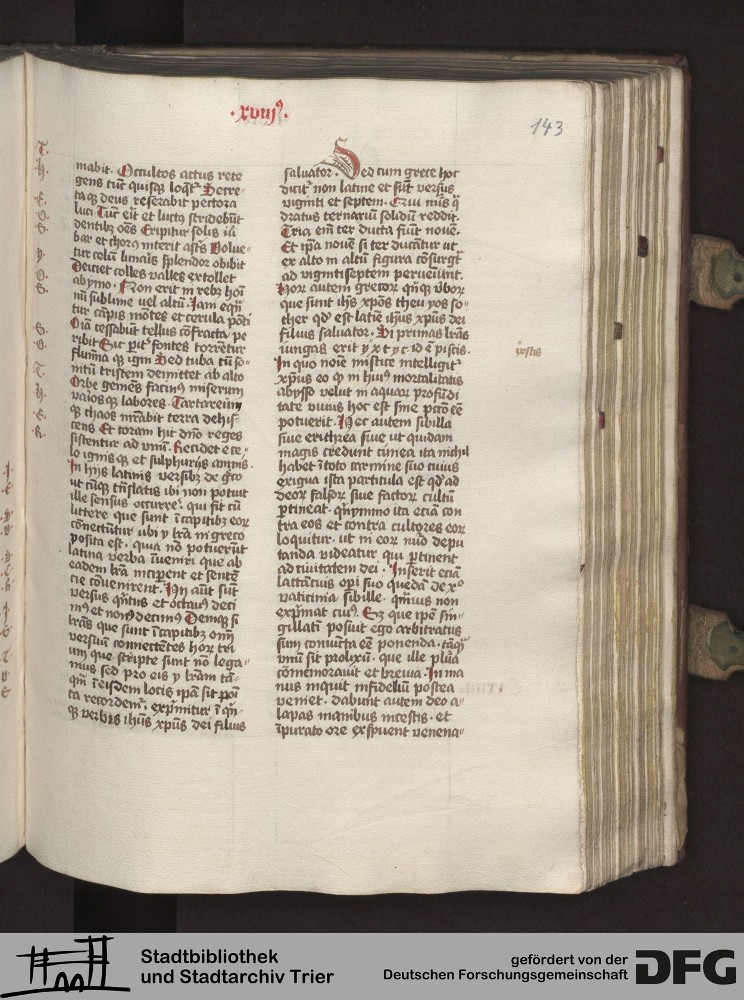 ·xviij⁹·
143
mabit. Occultos actus rete
gens tūc quisq; loq̄t᷑ Secre-
taq; deus reserabit pectora
luci Tūc eīt et luct⁹ stridebūt
dentib; oēs Eripitur solis iu
bar et chor⁹ interit astīs Solue-
tur celū lunaīs splendor obibit
Deiciet colles valles extollet
ab ymo. Non erit in reb; hoīū
nū sublime uel altū. Iam equāt᷑
tur cāpis mōtes et cerula pōti
Oīa cessabūt tellus cōfracta pe
ribit Sic pit᷑ fontes torrētur
flumīa q; igni Sed tuba tū so-
nitū tristem demittet ab alto
Orbe gemēs facin⁹ miserum
vaīos q; labores. Tartareūm
q; chaos mr̄abit terra dehis-
cens Et coram hic dn̄o reges
sistentur ad vnū. Recidet e ce-
lo ignis q; et sulphuris amnis.
In hijs latinis versib; de g̊co
ut cūq; tn̄slatis ibi non potuit
ille sensus occurre᷑ qui fit cū
littere que sunt ī capitib; eor
cōnectūtur ubi y lrā in greco
posita est. quia nō potuerūt
latina verba īueniri que ab
eadem lrā inciperent et sentē
cie cōuenirent. Hij aūt sūt
versus qn̄tus et octau⁹ deci
m⁹ et non⁹ decim⁹ Deniq; si
lrās que sunt ī capitib; om̄
versuū connectētes hor tri
um que scripte sunt nō lega-
mus sed pro eis y lrām tā-
qm̄ ī eisdem locis ipā sit poi
ta recordem᷑. exprimitur ī qn̄-
q; verbis ihūs xp̄us dei filius
saluator. Sed cum grece hoc
dicit᷑ non latine et sūt versus
viginti et septem. Qui nūs q̄
dratus ternariū solidū reddit.
Tria em̄ ter ducta fiūt nouē.
Et ip̄a nouē si ter ducātur ut
ex alto in altū figura cōsurgt
ad vigintiseptem perueniūt.
Hor autem grecor qn̄q; vbor
que sunt ihs xp̄os theu yos so-
ther qd' est latīe ihūs xp̄us dei
filius saluator. Si primas lrās
iungas erit y x t y c. id ē piscis.
In quo noīe mistice intelligit᷑
xp̄us eo q̄ in hui⁹ mortalitatis
abysso velut in aquar profūdi
tate viuus hoc est sine pctō eē
potuerit. Hec autem sibilla
siue erithrea siue ut quidam
magis credunt cimea ita nichil
habet ī toto carmine suo cuius
exigua ista particula est qd' ad
deor falsor siue factor cultū
ptineat. qn̄ymmo ita eciā con
tra eos et contra cultores eor
loquitur. ut in eor nūō depu
tanda videatur qui ptinent
ad ciuitatem dei. Inserit eciā
lactācius opi suo quedā de xo
vaticinia sibille. qmuis non
exprimat cui⁹. Sz que ipē sin-
gillatī posuit ego arbitratus
sum coniūcta eē ponenda. tāq̄
vnū sit prolixū. que ille plura
cōmemorauit et breuia. In ma
nus inquit infideliū postea
veniet. dabunt autem deo a-
lapas manibus incestis. et
īpurato ore exspuent venena-
Stadtbibliothek
und Stadtarchiv Trier
gefördert von der
Deutschen Forschungsgemeinschaft
DFG